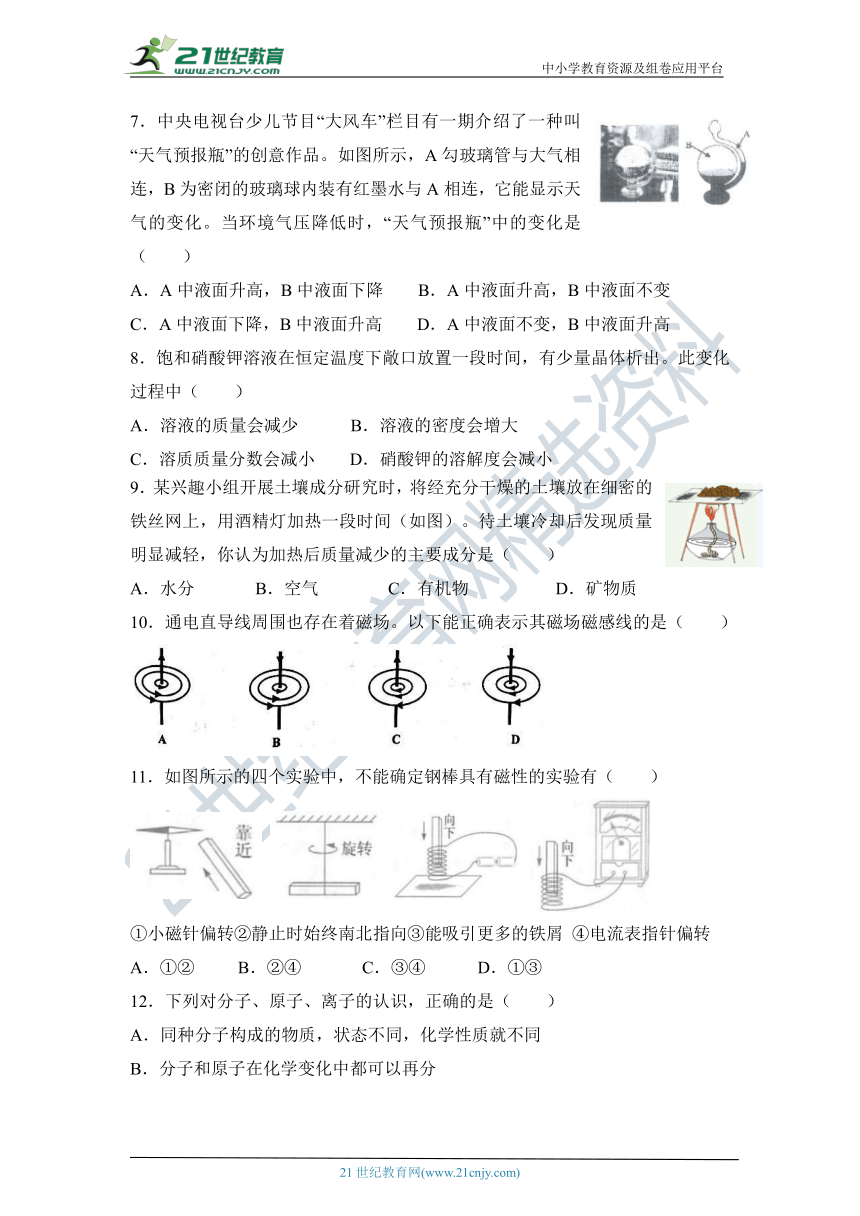 21世纪教育
www.21cnjy.com
中小学教育资源及组卷应用平台
7．中央电视台少儿节目“大风车”栏目有一期介绍了一种叫
“天气预报瓶”的创意作品。如图所示，A 勾玻璃管与大气相
连，B 为密闭的玻璃球内装有红墨水与 A 相连，它能显示天
气的变化。当环境气压降低时，“天气预报瓶”中的变化是
（　　）
B A
A．A 中液面升高，B 中液面下降 B．A 中液面升高，B 中液面不变
C．A 中液面下降，B 中液面升高 D．A 中液面不变，B 中液面升高
8．饱和硝酸钾溶液在恒定温度下敞口放置一段时间，有少量晶体析出。此变化
过程中（　　）
A．溶液的质量会减少 B．溶液的密度会增大
C．溶质质量分数会减小 D．硝酸钾的溶解度会减小
9．某兴趣小组开展土壤成分研究时，将经充分干燥的土壤放在细密的
铁丝网上，用酒精灯加热一段时间（如图）。待土壤冷却后发现质量
明显减轻，你认为加热后质量减少的主要成分是（　　）
A．水分 B．空气 C．有机物 D．矿物质
10．通电直导线周围也存在着磁场。以下能正确表示其磁场磁感线的是（　　）
A B C D
11．如图所示的四个实验中，不能确定钢棒具有磁性的实验有（　　）
靠近 旋转 向下 向下
①小磁针偏转②静止时始终南北指向③能吸引更多的铁屑 ④电流表指针偏转
A．①② B．②④ C．③④ D．①③
12．下列对分子、原子、离子的认识，正确的是（　　）
A．同种分子构成的物质，状态不同，化学性质就不同
B．分子和原子在化学变化中都可以再分
21世纪教育网(www.21cnjy.com)